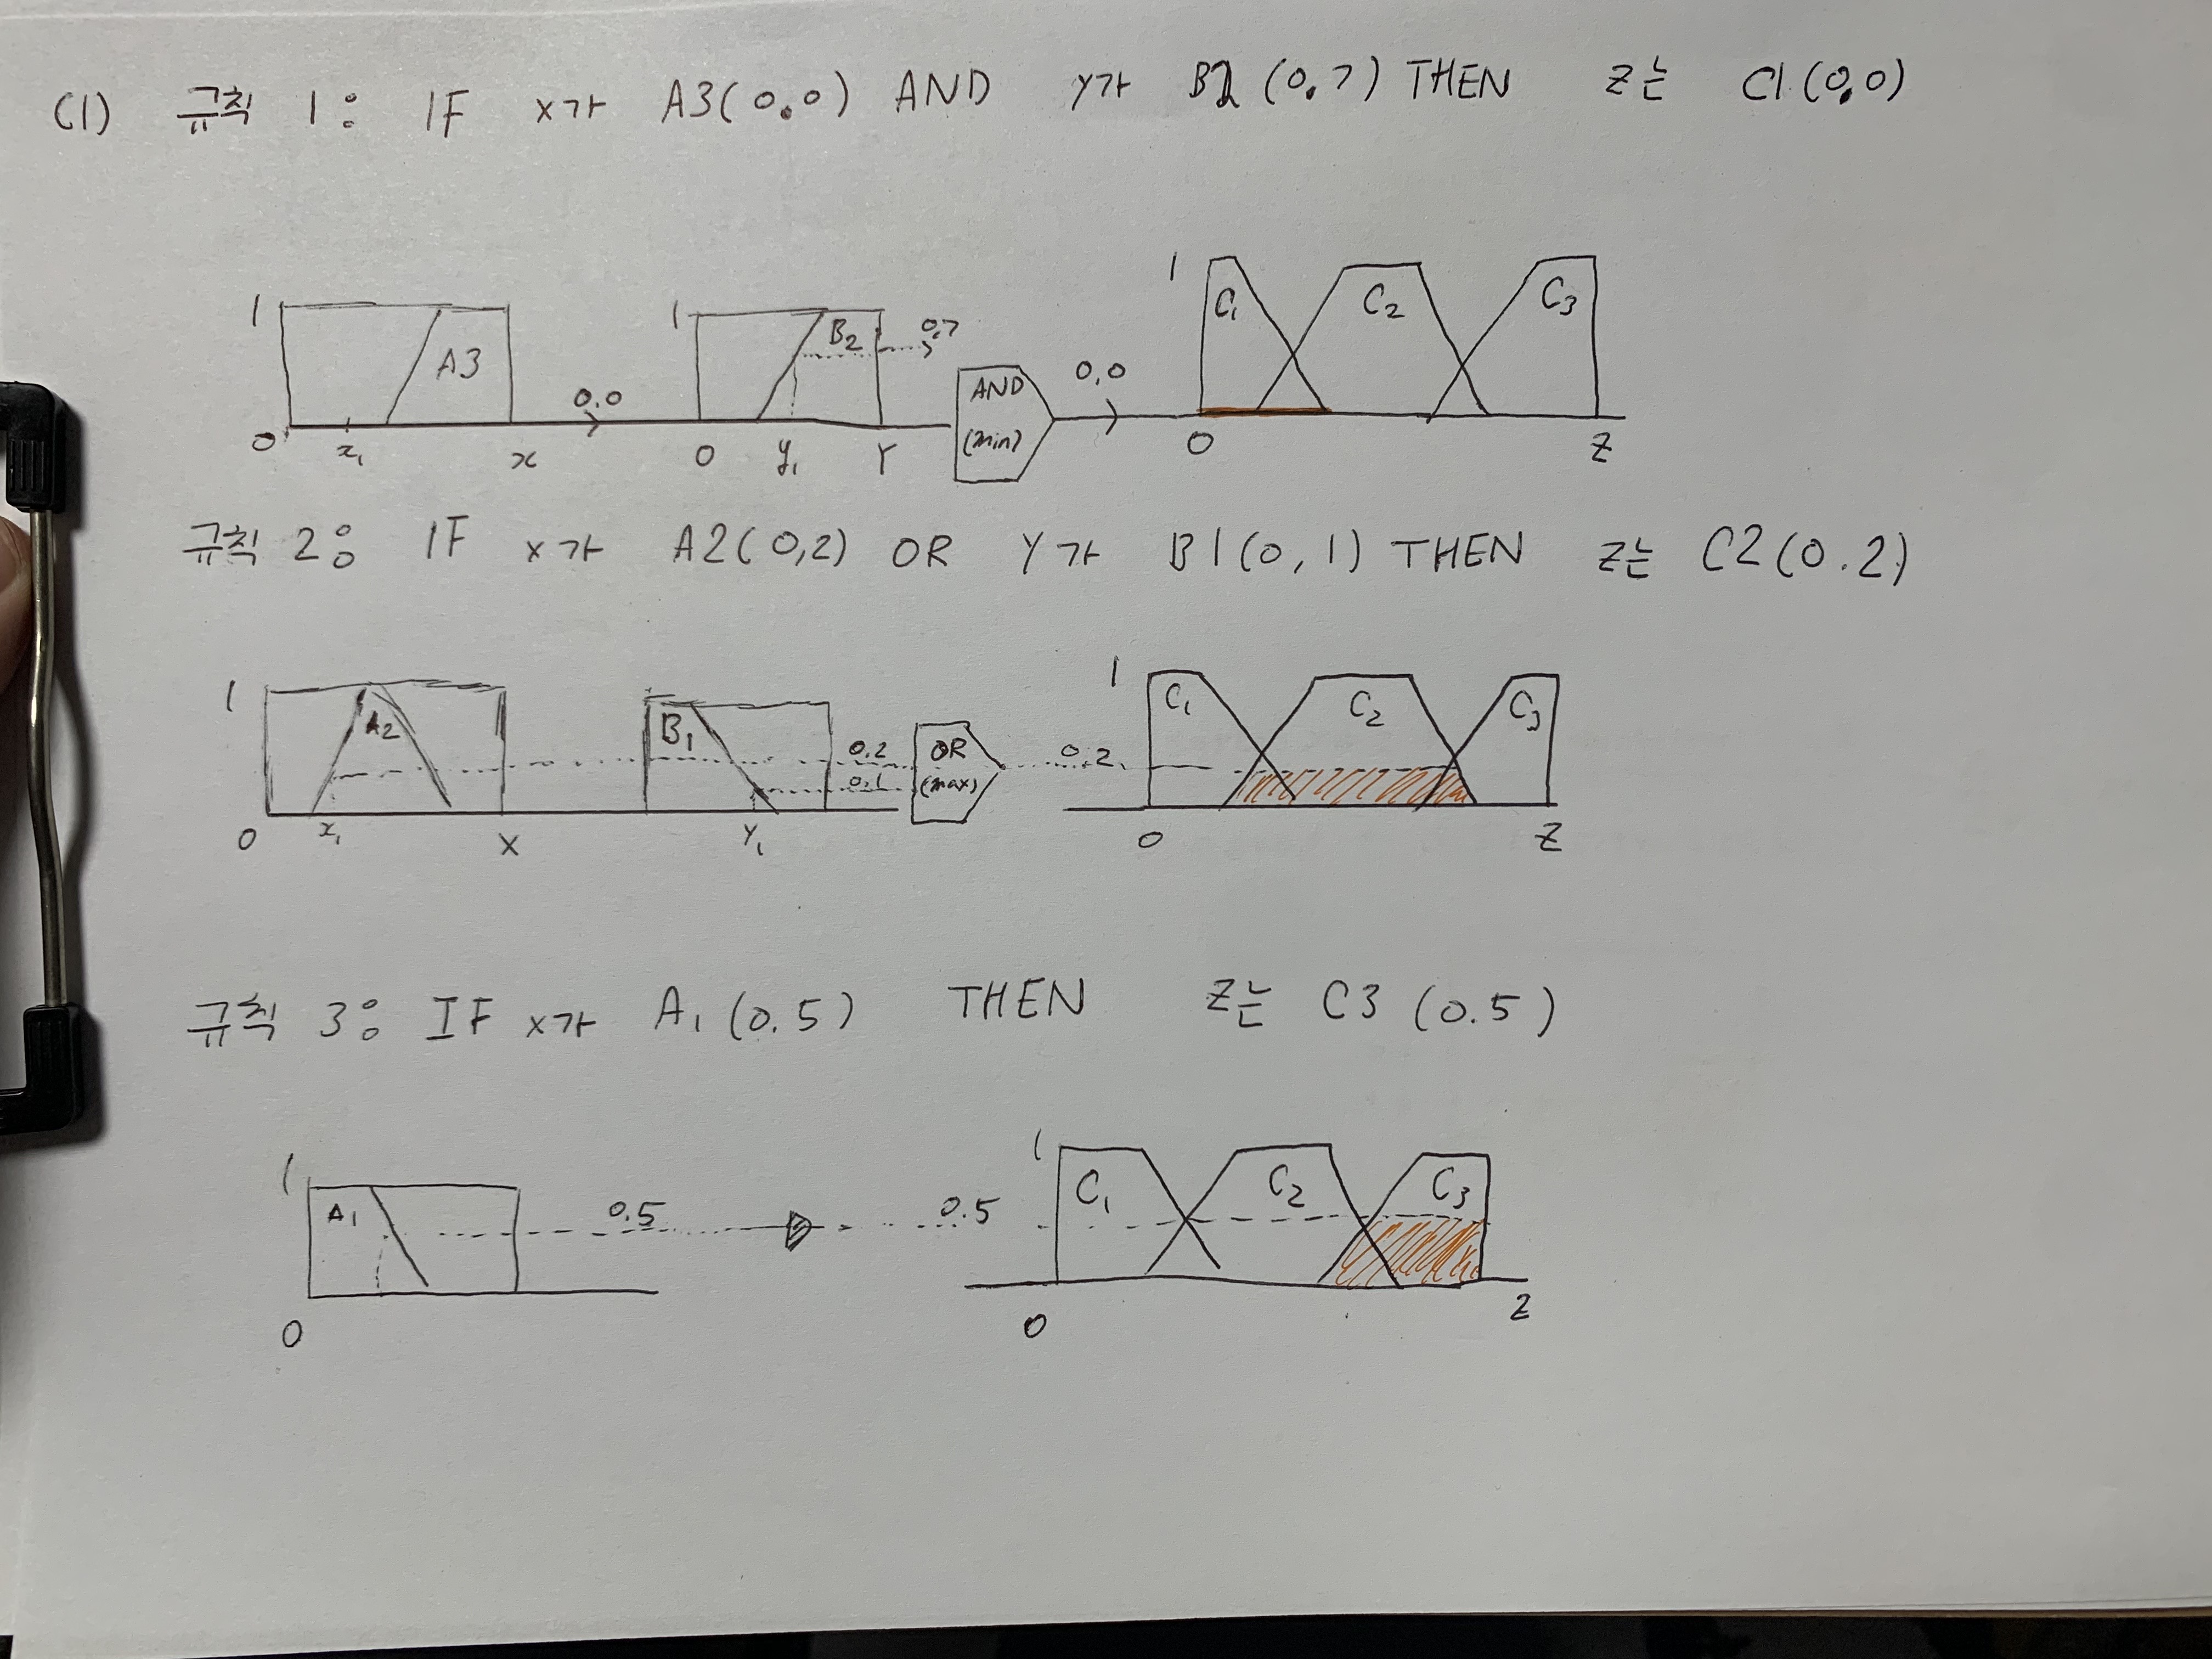 (1) 규칙 1: IF x가 A3(0.0) AND y가 B2 (0.7) THEN z는 C1(0.0)
1 A3 0.0 1 B2 0.7 AND (min) 0.0 1 C1 C2 C3
0 x1 x 0 y1 Y 0 Z
규칙 2: IF x가 A2(0,2) OR Y가 B1(0,1) THEN z는 C2(0.2)
1 A2 B1 0.2 0.1 OR (max) 0.2 1 C1 C2 C3
0 x1 X Y1 0 Z
규칙 3: IF x가 A1(0.5) THEN z는 C3 (0.5)
1 A1 0.5 0.5 1 C1 C2 C3
0 0 Z